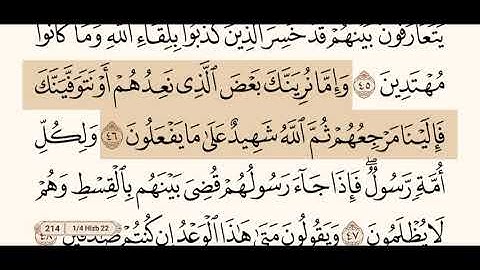 يَتَعَارَفُونَ بَيْنَهُمْ قَدْ خَسِرَ الَّذِينَ كَذَّبُوا بِلِقَاءِ اللَّهِ وَمَا كَانُوا
مُهْتَدِينَ ٤٥ وَإِمَّا نُرِيَنَّكَ بَعْضَ الَّذِي نَعِدُهُمْ أَوْ نَتَوَفَّيَنَّكَ
فَإِلَيْنَا مَرْجِعُهُمْ ثُمَّ اللَّهُ شَهِيدٌ عَلَىٰ مَا يَفْعَلُونَ ٤٦ وَلِكُلِّ
أُمَّةٍ رَّسُولٌ ۖ فَإِذَا جَاءَ رَسُولُهُمْ قُضِيَ بَيْنَهُم بِالْقِسْطِ وَهُمْ
لَا يُظْلَمُونَ ٤٧ وَيَقُولُونَ مَتَىٰ هَٰذَا الْوَعْدُ إِن كُنتُمْ صَادِقِينَ ٤٨
214 1/4 Hizb 22